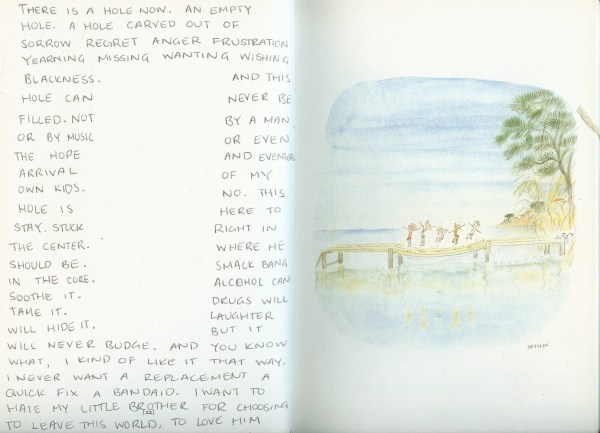 THERE IS A HOLE NOW. AN EMPTY
HOLE. A HOLE CARVED OUT OF
SORROW REGRET ANGER FRUSTRATION
YEARNING MISSING WANTING WISHING
BLACKNESS. AND THIS
HOLE CAN NEVER BE
FILLED. NOT BY A MAN
OR BY MUSIC OR EVEN
THE HOPE AND EVENTUAL
ARRIVAL OF MY
OWN KIDS. NO. THIS
HOLE IS HERE TO
STAY. STUCK RIGHT IN
THE CENTER. WHERE HE
SHOULD BE. SMACK BANG
IN THE CORE. ALCOHOL CAN
SOOTHE IT. DRUGS WILL
TAME IT. LAUGHTER
WILL HIDE IT. BUT IT
WILL NEVER BUDGE. AND YOU KNOW
WHAT, I KIND OF LIKE IT THAT WAY.
I NEVER WANT A REPLACEMENT A
QUICK FIX A BANDAID. I WANT TO
HATE MY LITTLE BROTHER FOR CHOOSING
[22]
TO LEAVE THIS WORLD, TO LOVE HIM